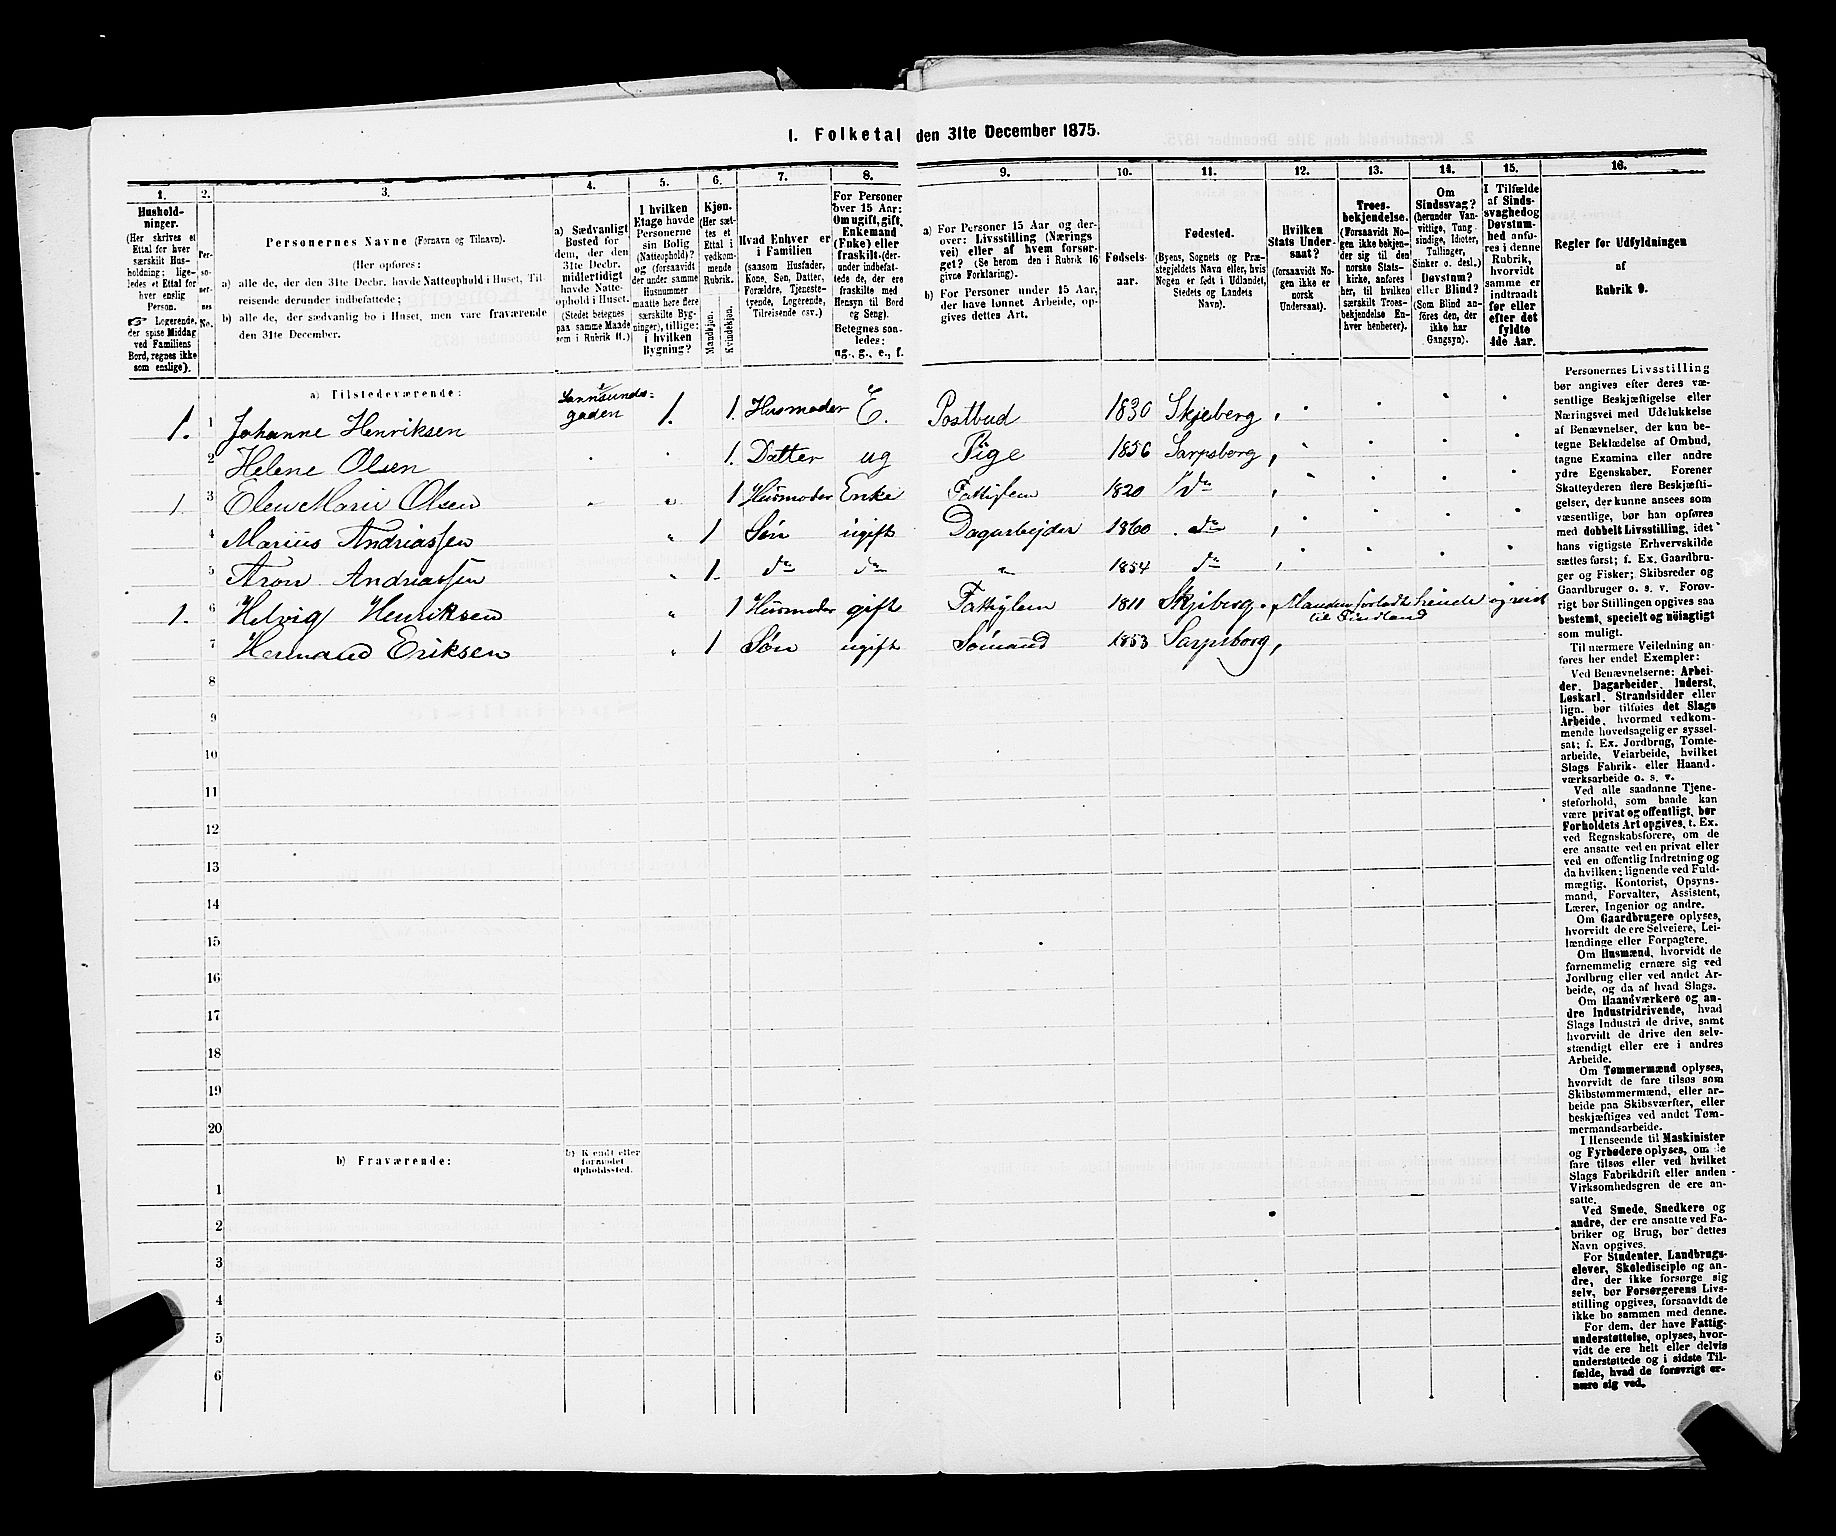 1. Folketal den 31te December 1875.
1. 2. 3. 4. 5. 6. 7. 8. 9. 10. 11. 12. 13. 14. 15. 16.
Hushold-
ninger.
(Her skrives et
Ettal for hver
særskilt Hus-
holdning; lige-
ledes et Ettal for
hver enslig
Person.
☞ Logerende,
der spise Middag
ved Familiens
Bord, regnes ikke
som enslige).
Per-
so-
ner-
nes
No.
Personernes Navne (Fornavn og Tilnavn).
(Her opføres:
a) alle de, der den 31te Decbr. havde Natteophold i Huset, Til-
reisende derunder indbefattede;
b) alle de, der sædvanlig bo i Huset, men vare fraværende
den 31te December.
a) Sædvanligt
Bosted for
dem, der den
31te Decbr.
midlertidigt
havde Natte-
ophold i Huset.
(Stedet betegnes
paa samme Maade
som i Rubrik 11.)
I hvilken
Etage havde
Personerne
sin Bolig
(Natteophold)?
og (forsaavidt
der under samme
Husnummer
maatte høre flere
særskilte Byg-
ninger), tillige:
i hvilken
Bygning?
Kjøn.
(Her sæt-
tes et
Ettal i
vedkom-
mende
Rubrik.
Mandkjøn.
Kvindekjøn.
Hvad Enhver er
i Familien
(saasom Husfader,
Kone, Søn, Datter,
Forældre, Tjeneste-
tyende, Logerende,
Tilreisende osv.)
For Personer
over 15 Aar:
Om ugift, gift,
Enkemand
(Enke) eller
fraskilt (der-
under indbefat-
tede de, der ere
fraskilte med
Hensyn til Bord
og Seng).
Betegnes saa-
ledes:
ug., g., e., f.
a) For Personer 15 Aar og der-
over: Livsstilling (Nærings
vei) eller af hvem forsør-
get? (Se herom den i Rubrik 16
givne Forklaring).
b) For Personer under 15 Aar,
der have lønnet Arbeide, op-
gives dettes Art.
Fødsels-
aar.
Fødested.
(Byens, Sognets og Præ-
stegjeldets Navn eller, hvis
Nogen er født i Udlandet,
Stedets og Landets
Navn).
Hvilken
Stats Under-
saat?
(forsaavidt No-
gen ikke er
norsk
Undersaat).
Troes-
bekjendelse.
(Forsaavidt No-
gen ikke bekjen-
der sig til den
norske Stats-
kirke, anføres
her, til hvilken
særskilt Troes-
bekjendelse En-
hver henhører).
Om
Sindssvag?
(herunder Van-
vittige, Tung-
sindige, Idioter,
Tullinger,
Sinker o. desl.)
Døvstum?
eller Blind?
(Som Blind an-
føres den, der
ikke har
Gangsyn).
I Tilfælde
af Sinds-
svaghed og
Døvstum-
hed anfø-
res i denne
Rubrik,
hvorvidt
samme er
indtraadt
før eller
efter det
fyldte
4de Aar.
Regler for Udfyldningen
af
Rubrik 9.
a) Tilstedeværende:
1. 1 Johanne Henriksen Sannesunds-
gaden 1. 1. Husmoder E. Postbud 1830 Skjeberg
2 Helene Olsen 1. Datter ug Pige 1856 Sarpsborg
1. 3 Olene Marie Olsen 1 Husmoder Enke Fattiglem 1820 do
4 Marius Andriassen 1 Søn ugift Dagarbejder 1860 do
5 Aron Andriassen 1. do do " 1854 do
1. 6 Helvig Henriksen 1 Husmoder gift Fattiglem 1811 Skjeberg. Manden forladt hende og reist
til Findland
7 Hermand Eriksen 1 Søn ugift Sømand 1853 Sarpsborg
8
9
10
11
12
13
14
15
16
17
18
19
20
b) Fraværende:
b) Kjendt eller
formodet
Opholdssted.
1
2
3
4
5
6
Personernes Livsstilling
bør angives efter deres væ-
sentlige Beskjæftigelse eller
Næringsvei med Udelukkelse
af Benævnelser, der kun be-
tegne Beklædelse af Ombud,
tagne Examina eller andre
ydre Egenskaber. Forener
Skatteyderen flere Beskjæfti-
gelser, der kunne ansees som
væsentlige, bør han opføres
med dobbelt Livsstilling, idet
hans vigtigste Erhvervskilde
sættes først; f. Ex. Gaardbru-
ger og Fisker; Skibsreder og
Gaardbruger o. s. v. Forøv-
rigt bør Stillingen opgives saa
bestemt, specielt og nöiagtigt
som muligt.
Til nærmere Veiledning an-
føres her endel Exempler:
Ved Benævnelserne: Arbei-
der, Dagarbeider, Inderst,
Løskarl, Strandsidder eller
lign. bør tilføies det Slags
Arbeide, hvormed vedkom-
mende hovedsagelig er syssel-
sat; f. Ex. Jordbrug, Tomte-
arbeide, Veiarbeide, hvilket
Slags Fabrik- eller Haand-
værksarbeide o. s. v.
Ved alle saadanne Tjene-
steforhold, som baade kan
være privat og offentligt, bør
Forholdets Art opgives, f. Ex.
ved Regnskabsførere, om de
ere ansatte ved en privat eller
ved en offentlig Indretning og
da hvilken; lignende ved Fuld-
mægtig, Kontorist, Opsyns-
mand, Forvalter, Assistent,
Lærer, Ingeniør og andre.
Om Gaardbrugere oplyses,
hvorvidt de ere Selveiere, Lei-
lændinge eller Forpagtere.
Om Husmænd, hvorvidt de
fornemmelig ernære sig ved
Jordbrug eller ved andet Ar-
beide, og da af hvad Slags.
Om Haandværkere og an-
dre Industridrivende, hvad
Slags Industri de drive, samt
hvorvidt de drive den selv-
stændigt eller ere i andres
Arbeide.
Om Tømmermænd oplyses,
hvorvidt de fare tilsøs som
Skibstømmermænd, eller ar-
beide paa Skibsværfter, eller
beskjæftiges ved andet Tøm-
mermandsarbeide.
I Henseende til Maskinister
og Fyrbødere oplyses, om de
fare tilsøs eller ved hvilket
Slags Fabrikdrift eller anden
Virksomhedsgren de ere an-
satte.
Ved Smede, Snedkere og
andre, der ere ansatte ved Fa-
briker og Brug, bør dettes
Navn opgives.
For Studenter, Landbrugs-
elever, Skoledisciple og an-
dre, der ikke forsørge sig
selv, bør Forsørgerens Livs-
stilling opgives, forsaavidt de
ikke bo sammen med denne.
For dem, der have Fattig-
understøttelse, oplyses, hvor-
vidt de ere helt eller delvis
understøttede og i sidste Til-
fælde, hvad de forøvrigt er-
nære sig ved.